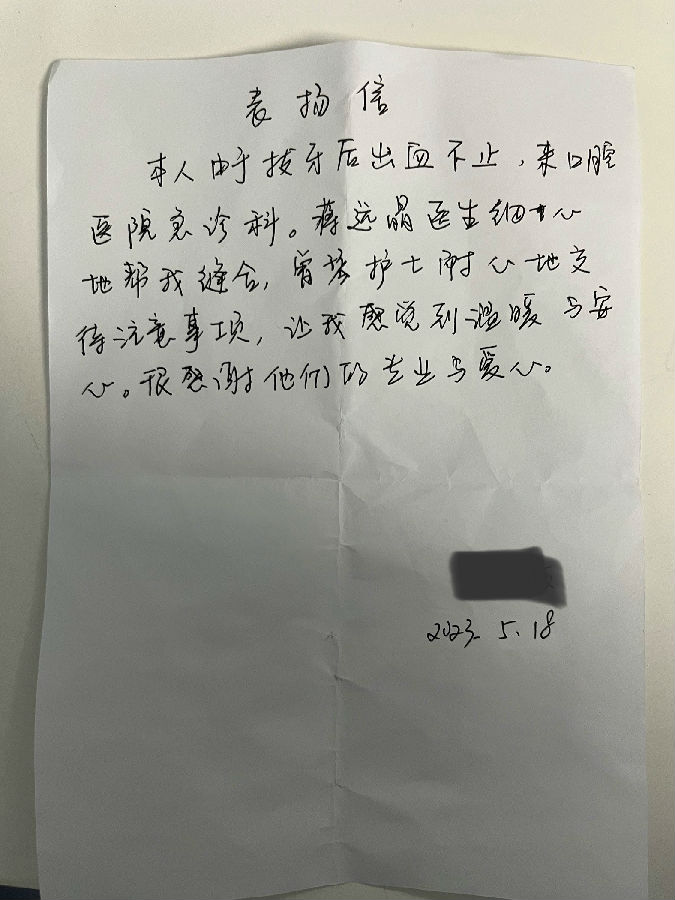 表扬信
本人由于拔牙后出血不止，来口腔
医院急诊科。蒋远晶医生细心
地帮我缝合，曾  护士耐心地交
待注意事项，让我感觉到温暖与安
心。很感谢他们的专业与爱心。
2023. 5. 18